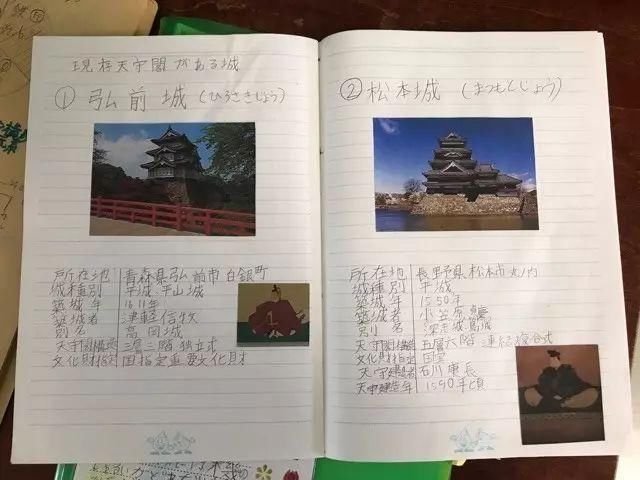 現存天守閣がある城
① 弘前城 (ひろさきじょう)
所在地 青森県弘前市白銀町
城種別 平城 平山城
築城年 1611年
築城者 津軽信枚
別名 高岡城
天守閣構造 三層三階 独立式
文化財指定 国指定重要文化財
② 松本城 (まつもとじょう)
所在地 長野県松本市丸ノ内
城種別 平城
築城年 1550年
築城者 小笠原
別名 深志城
天守閣構造 五層六階 連結複合式
文化財指定 国宝
天守建造者 石川康長
天守建造年 1590年頃